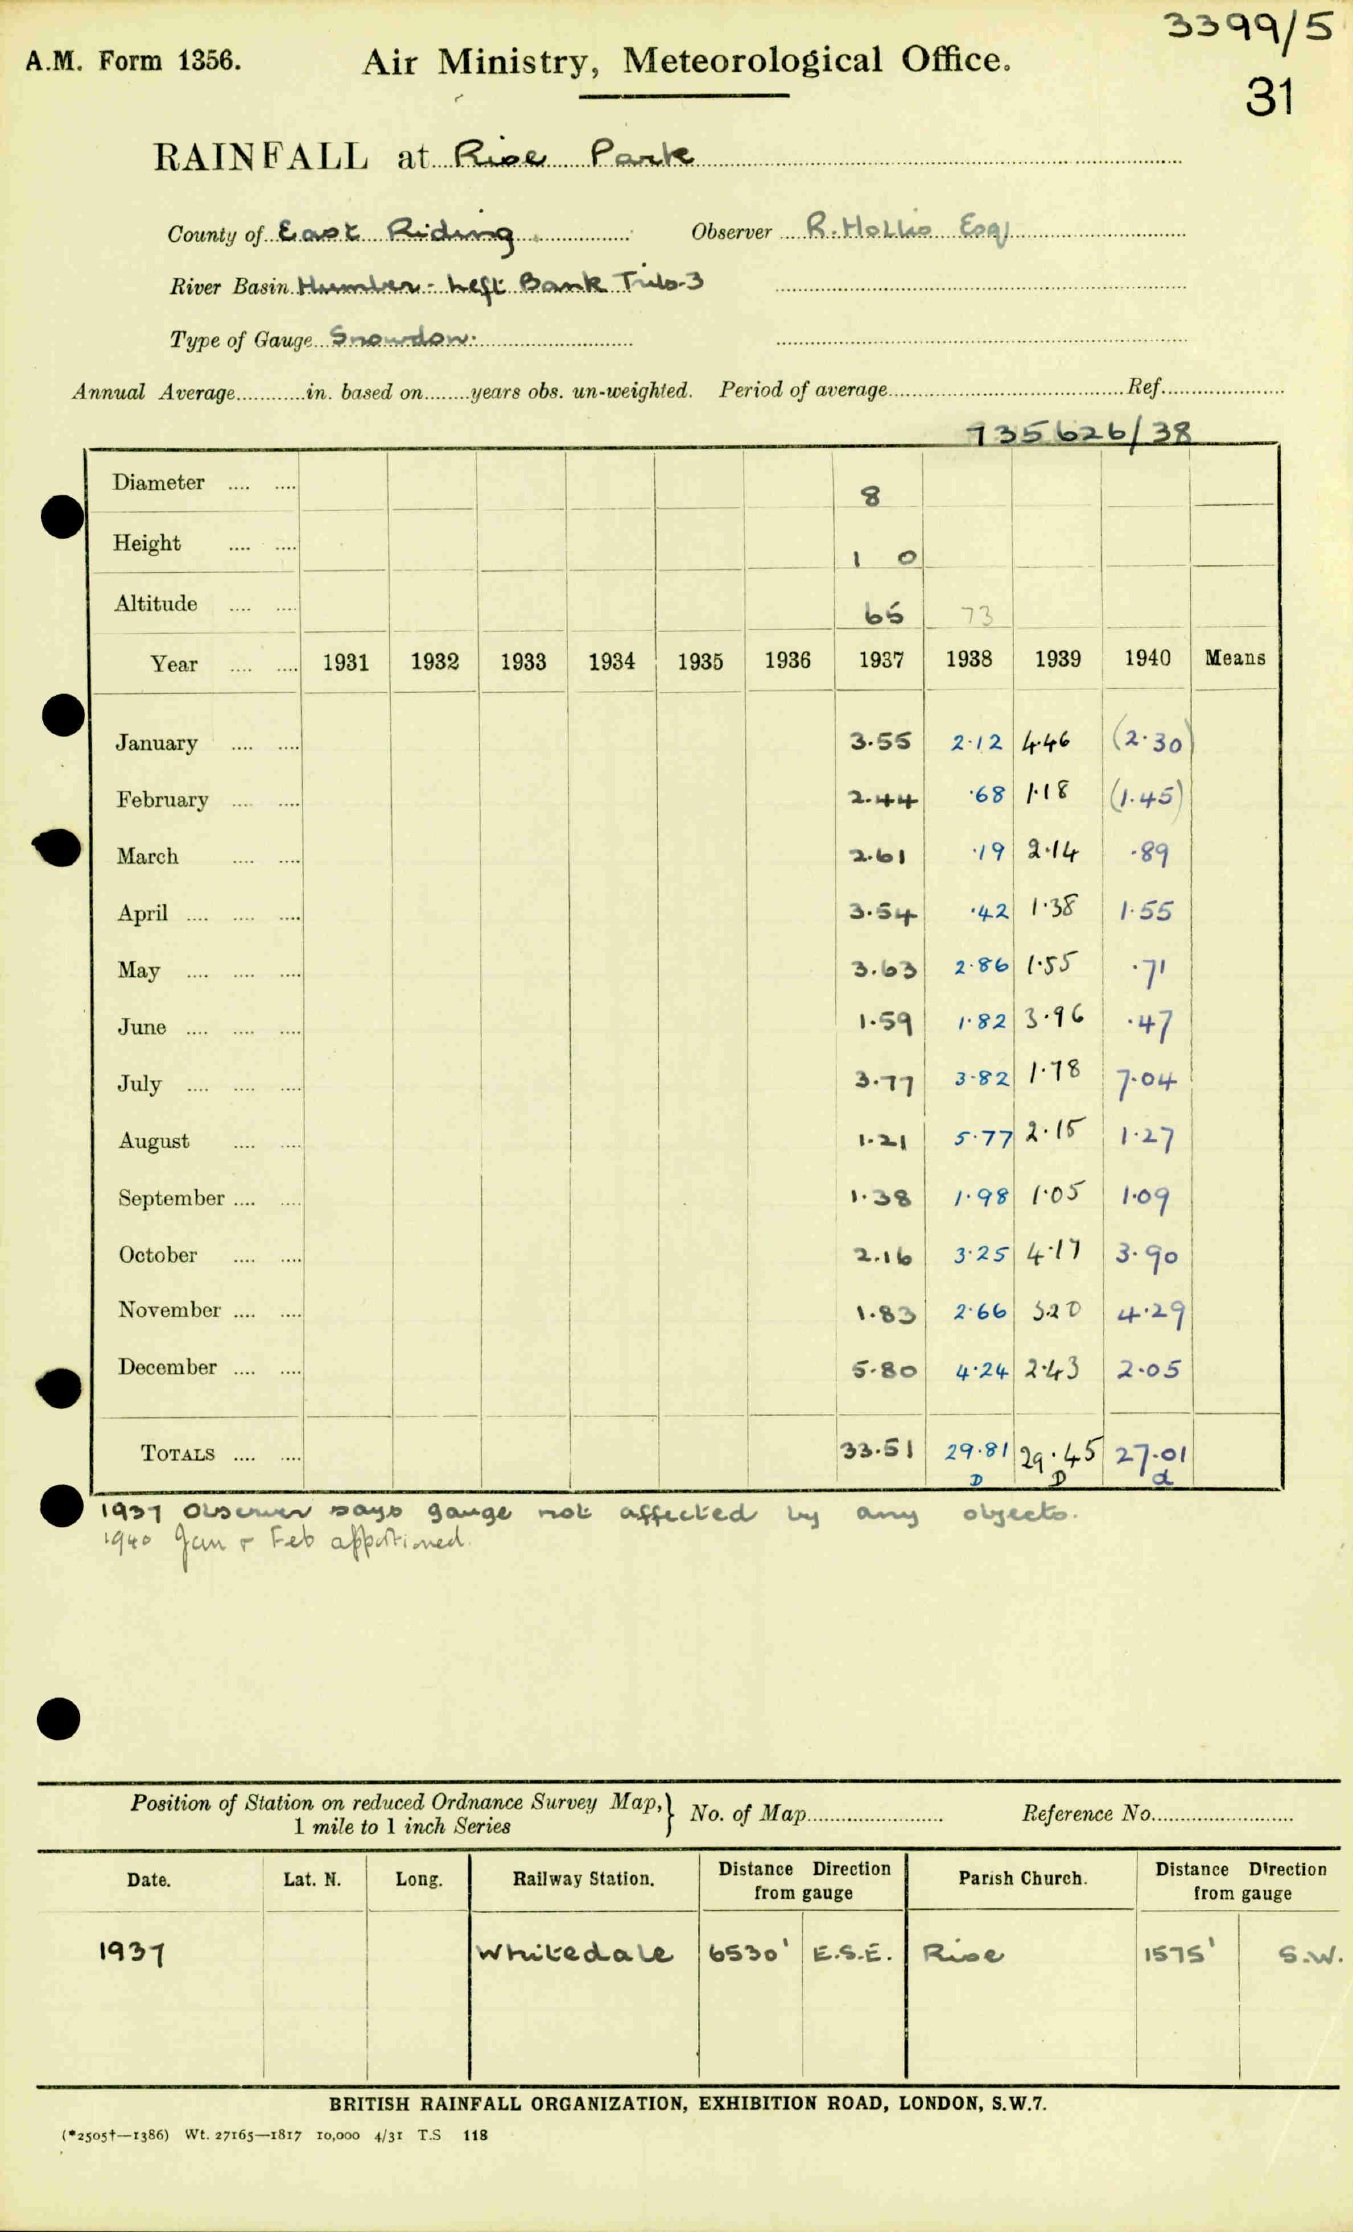 3399/5
31
A.M. Form 1356.
Air Ministry, Meteorological Office.
RAINFALL at Rise Park
County of East Riding. Observer R. Hollis Esq
River Basin Humber - Left Bank Tribs-3
Type of Gauge Snowdon.
Annual Average............in. based on........years obs. un-weighted. Period of average.......... Ref..........
735626/38
Diameter .... .... 8
Height .... .... 1 0
Altitude .... .... 65 73
Year .... .... 1931 1932 1933 1934 1935 1936 1937 1938 1939 1940 Means
January .... .... 3.55 2.12 4.46 (2.30)
February .... .... 2.44 .68 1.18 (1.45)
March .... .... 2.61 .19 2.14 .89
April .... .... .... 3.54 .42 1.38 1.55
May .... .... .... 3.63 2.86 1.55 .71
June .... .... .... 1.59 1.82 3.96 .47
July .... .... .... 3.77 3.82 1.78 7.04
August .... .... 1.21 5.77 2.15 1.27
September .... .... 1.38 1.98 1.05 1.09
October .... .... 2.16 3.25 4.17 3.90
November .... .... 1.83 2.66 3.20 4.29
December .... .... 5.80 4.24 2.43 2.05
TOTALS .... .... 33.51 29.81 29.45 27.01
D D d
1937 Observer says gauge not affected by any objects.
1940 Jan & Feb apportioned.
Position of Station on reduced Ordnance Survey Map,} No. of Map.......... Reference No..........
1 mile to 1 inch Series
Date. Lat. N. Long. Railway Station. Distance Direction from gauge Parish Church. Distance Direction from gauge
1937 Whitedale 6530' E.S.E. Rise 1575' S.W.
BRITISH RAINFALL ORGANIZATION, EXHIBITION ROAD, LONDON, S.W.7.
(*2505†—1386) Wt. 27165—1817 10,000 4/31 T.S 118